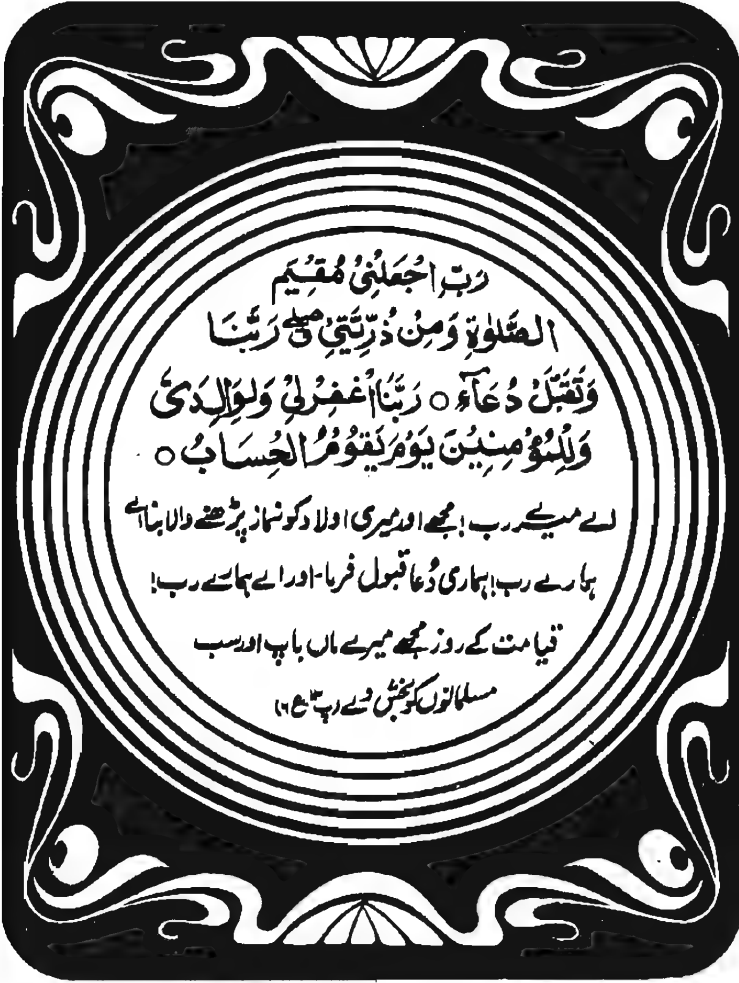 رَبِّ اجْعَلْنِیْ مُقِیْمَ
الصَّلٰوةِ وَمِنْ ذُرِّیَّتِیْ صلے ق رَبَّنَا
وَتَقَبَّلْ دُعَآءِ ○ رَبَّنَا اغْفِرْلِیْ وَلِوَالِدَیَّ
وَلِلْمُؤْمِنِیْنَ یَوْمَ یَقُوْمُ الْحِسَابُ ○
اے میرے رب! مجھے اور میری اولاد کو نماز پڑھنے والا بنا اے
ہمارے رب! ہماری دُعا قبول فرما۔ اور اے ہمارے رب!
قیامت کے روز مجھے میرے ماں باپ اور سب
مسلمانوں کو بخش دے (پ۱۳ ع۶)